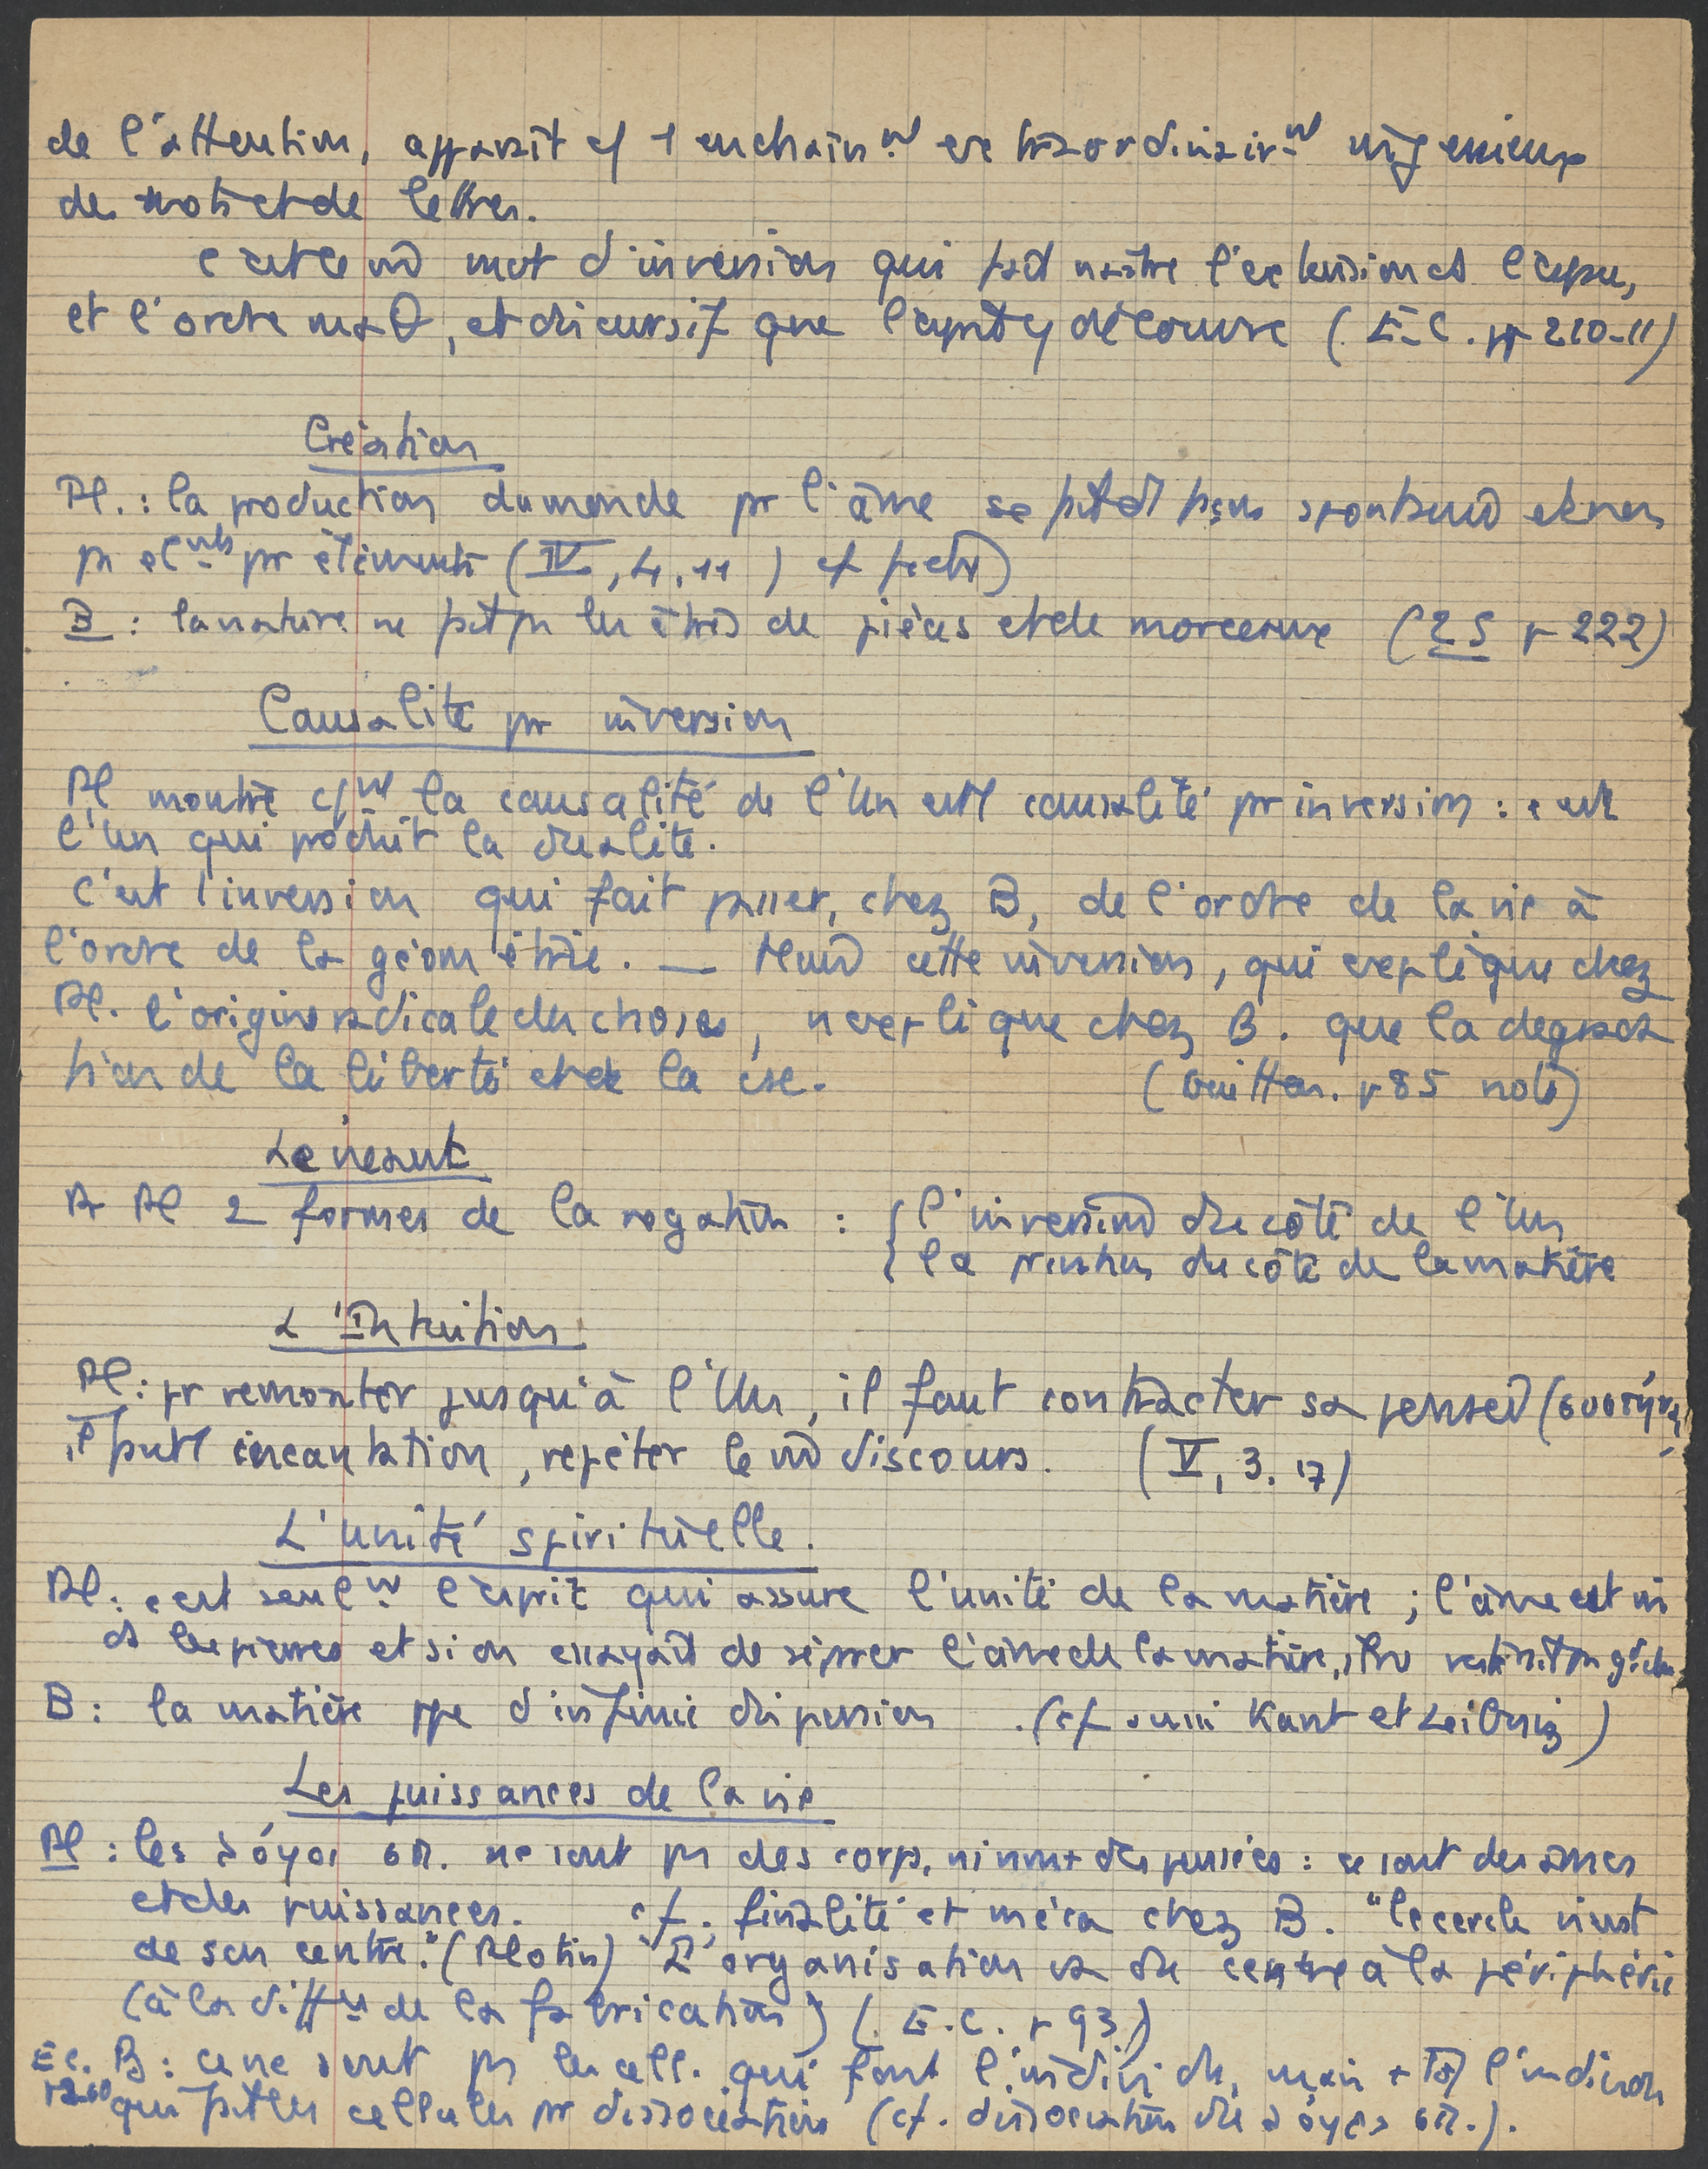 de l'attention, apparaît cf 1 enchain.nt extraordinair.nt ingénieux
de mots et de lettres.
c'est ce m̂ mvt d'inversion qui fait naître l'extension ds l'espace,
et l'ordre maθ, et discursif que l'esprit y découvre (E-C. pp 210-11)
Création
Pl. : la production du monde pr l'âme se fait spontané et non
pas élément pr éléments (IV, 4, 11)
B : la nature ne fait pas les êtres de pièces et de morceaux (ES p 222)
Causalité pr inversion
Pl montre c/nt la causalité de l'Un est 1 causalité pr inversion : c'est
l'Un qui produit la dualité.
C'est l'inversion qui fait passer, chez B, de l'ordre de la vie à
l'ordre de la géométrie. — cette inversion, qui explique chez
Pl. l'origine radicale des choses, n'explique chez B. que la dégrada
tion de la liberté et de la csc. (Guitton. p 85 note)
Le néant
Pr Pl 2 formes de la négation : { l'inversion du côté de l'Un
la privation du côté de la matière
L'Intuition
Pl : pr remonter jusqu'à l'Un, il faut contracter sa pensée
il faut 1 incantation, répéter le m̂ discours. (V, 3. 17)
L'unité spirituelle.
Pl : c'est seul.nt l'esprit qui assure l'unité de la matière ; l'âme est m̂
ds les pierres et si on essayait de séparer l'âme de la matière, il ne resterait pas gd chose
B : la matière ppe d'infinie dispersion. (cf aussi Kant et Leibniz)
Les puissances de la vie
Pl : les λόγοι σπ. ne sont pas des corps, ni non + des pensées : ce sont des âmes
et des puissances. cf. finalité et méca chez B. "le cercle naît
de son centre." (Plotin) L'organisation va du centre à la périphérie
(à la diff. de la fabrication) (E.C. p 93)
EC. B : ce ne sont pas les cell. qui font l'individu, mais + tôt l'individu
p 260 qui fait les cellules pr dissociation (cf. dissociation du λόγος σπ.).